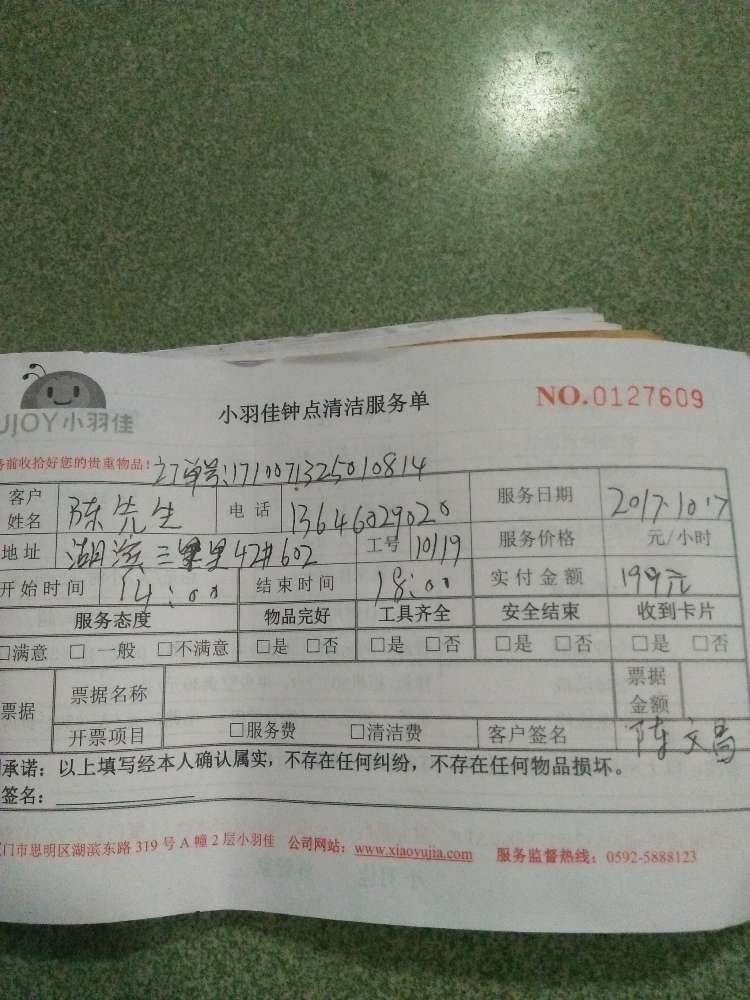 UJOY小羽佳
小羽佳钟点清洁服务单
NO.0127609
务前收拾好您的贵重物品！
订单号:171007325010814
客户姓名 陈先生 电话 13646029020 服务日期 2017.10.7
地址 湖滨三里42#602 工号 10119 服务价格 元/小时
开始时间 14:00 结束时间 18:00 实付金额 199元
服务态度 物品完好 工具齐全 安全结束 收到卡片
□满意 □一般 □不满意 □是 □否 □是 □否 □是 □否 □是 □否
票据 票据名称 票据金额
开票项目 □服务费 □清洁费 客户签名 陈文昌
承诺：以上填写经本人确认属实，不存在任何纠纷，不存在任何物品损坏。
签名：
门市思明区湖滨东路 319 号 A 幢 2 层小羽佳 公司网站：www.xiaoyujia.com 服务监督热线：0592-5888123